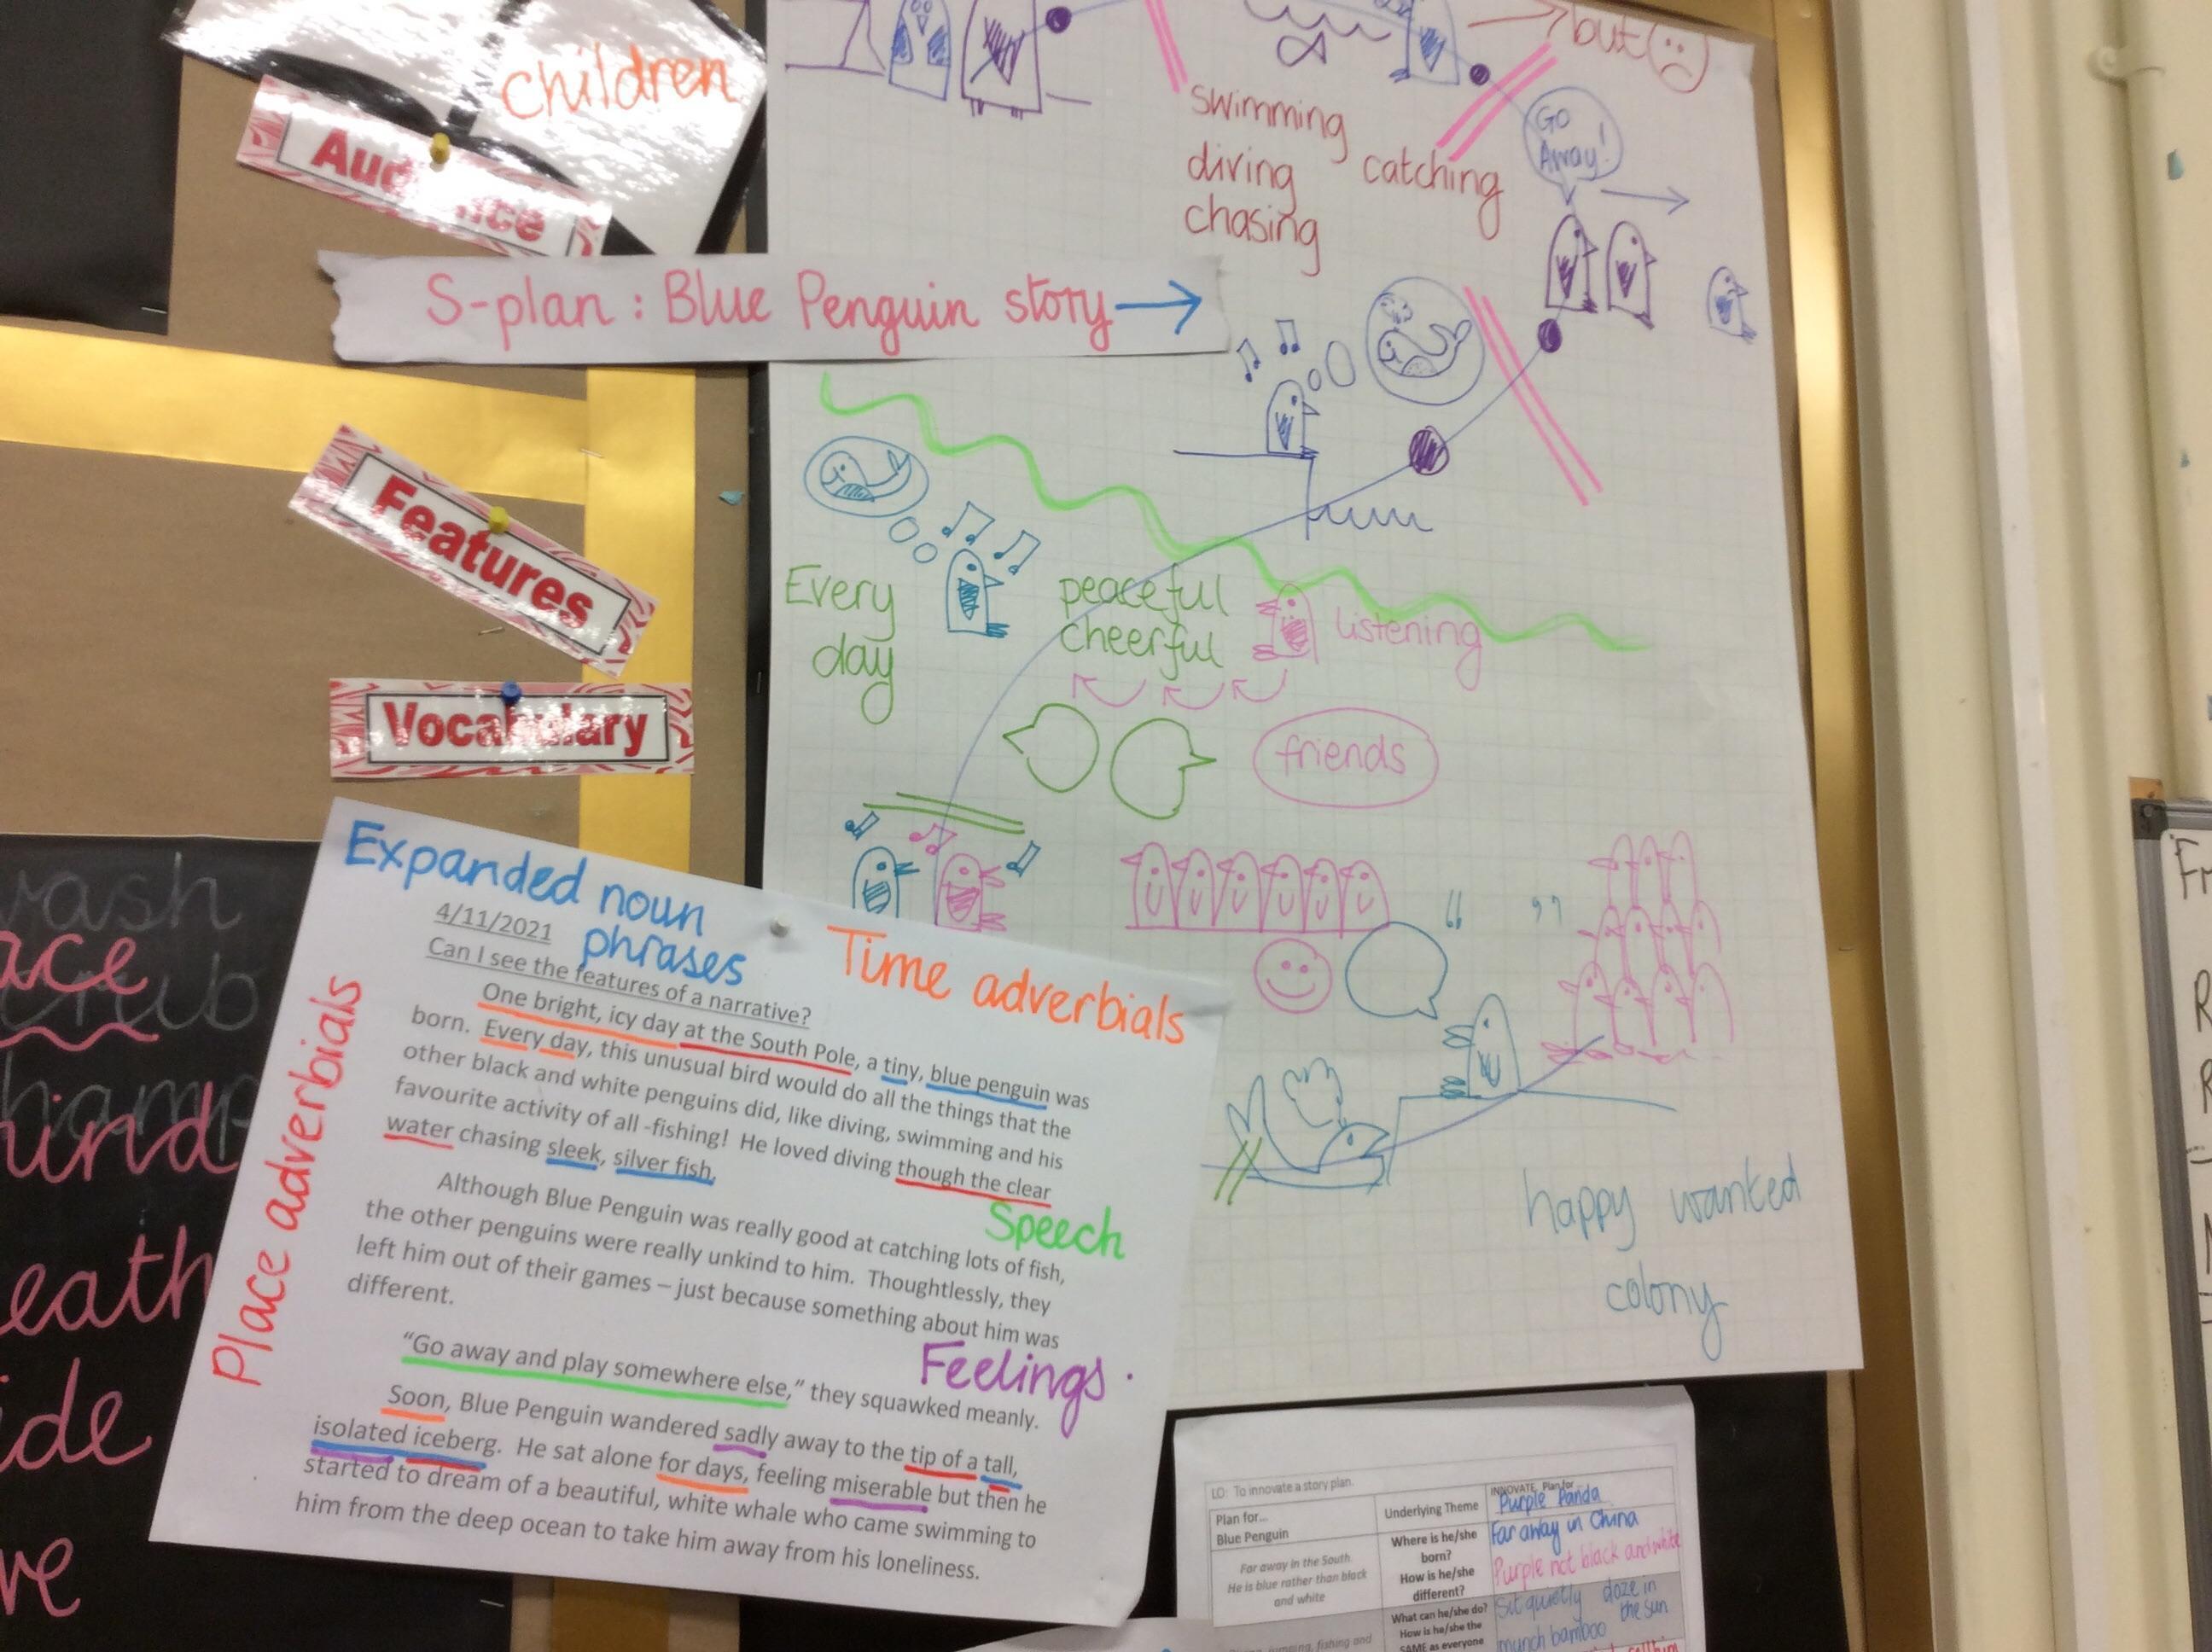 children
Audience
S-plan : Blue Penguin story
Features
Vocabulary
but
Go
Away!
swimming
diving
chasing
catching
Every
day
peaceful
cheerful
listening
friends
“ ”
happy wanted
colony
Expanded noun
phrases
Time adverbials
Place adverbials
Speech
Feelings.
4/11/2021
Can I see the features of a narrative?
One bright, icy day at the South Pole, a tiny, blue penguin was
born. Every day, this unusual bird would do all the things that the
other black and white penguins did, like diving, swimming and his
favourite activity of all -fishing! He loved diving though the clear
water chasing sleek, silver fish.
Although Blue Penguin was really good at catching lots of fish,
the other penguins were really unkind to him. Thoughtlessly, they
left him out of their games – just because something about him was
different.
“Go away and play somewhere else,” they squawked meanly.
Soon, Blue Penguin wandered sadly away to the tip of a tall,
isolated iceberg. He sat alone for days, feeling miserable but then he
started to dream of a beautiful, white whale who came swimming to
him from the deep ocean to take him away from his loneliness.
LO: To innovate a story plan.
Plan for...
Blue Penguin
Underlying Theme
INNOVATE Plan for
Purple Panda
Far away in the South.
He is blue rather than black
and white
Where is he/she
born?
How is he/she
different?
Far away in China
Purple not black and white
What can he/she do?
How is he/she the
SAME as everyone
Sit quietly doze in
the sun
munch bamboo
jumping, fishing and